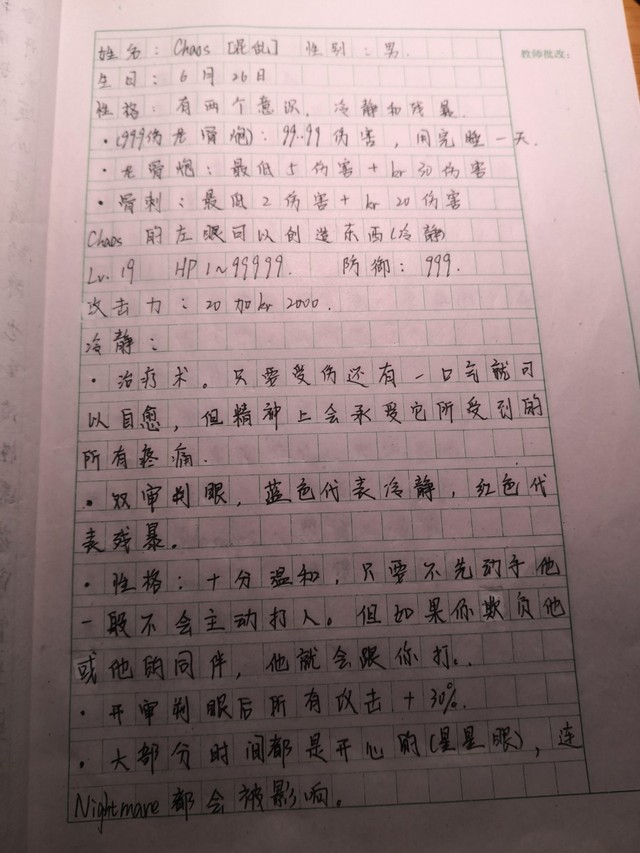 教师批改:
姓名：Chaos [混乱] 性别：男.
生日：6月26日
性格：有两个意识，冷静和残暴
·(999伤龙骨炮)：99..99伤害，用完睡一天.
·龙骨炮：最低5伤害+kr 30伤害
·骨刺：最低2伤害+kr 20伤害
Chaos 的左眼可以创造东西(冷静)
Lv. 19 HP 1~99999. 防御：999.
攻击力：20加kr 2000.
冷静：
·治疗术。只要受伤还有一口气就可
以自愈，但精神上会承受它所受到的
所有疼痛.
·双审判眼，蓝色代表冷静，红色代
表残暴。
·性格：十分温和，只要不先动手他
一般不会主动打人。但如果你欺负他
或他的同伴，他就会跟你打..
·开审判眼后所有攻击+30%.
·大部分时间都是开心的(星星眼)，连
Nightmare都会被影响。